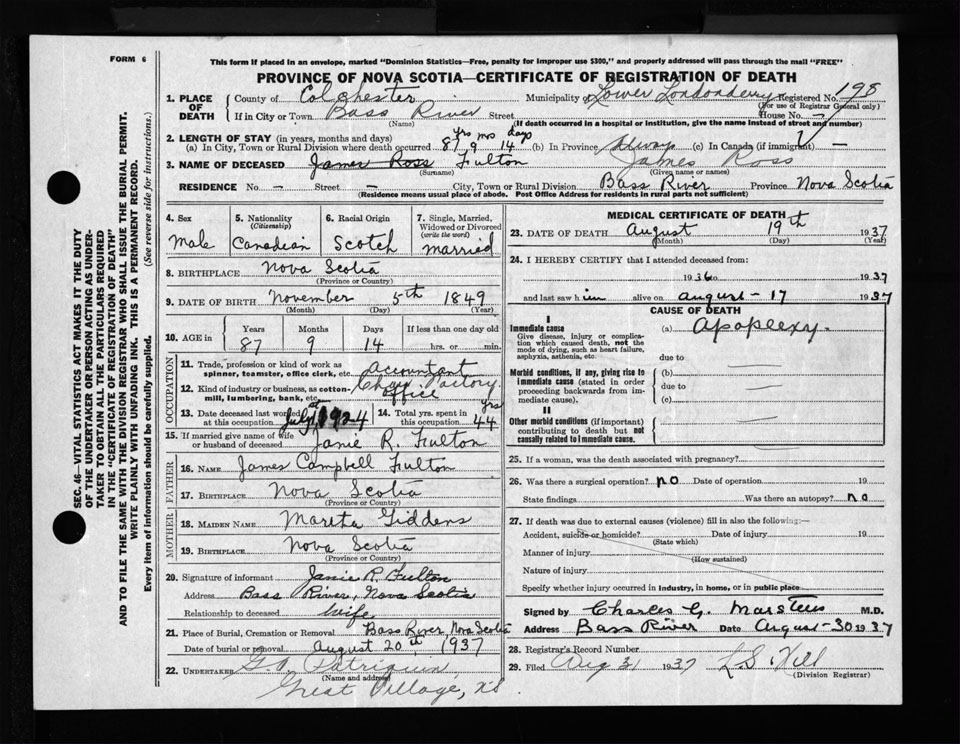 FORM 6
This form if placed in an envelope, marked "Dominion Statistics—Free, penalty for improper use $300," and properly addressed will pass through the mail "FREE"
PROVINCE OF NOVA SCOTIA—CERTIFICATE OF REGISTRATION OF DEATH
1. PLACE OF DEATH County of Colchester Municipality of Lower Londonderry Registered No. 198
(For use of Registrar General only)
If in City or Town Bass River Street House No. —
(Name) (If death occurred in a hospital or institution, give the name instead of street and number)
2. LENGTH OF STAY (in years, months and days) yrs mos days
(a) In City, Town or Rural Division where death occurred 87 9 14 (b) In Province Always (c) In Canada (if immigrant) —
3. NAME OF DECEASED James Ross Fulton James Ross
(Surname) (Given name or names)
RESIDENCE No. — Street — City, Town or Rural Division Bass River Province Nova Scotia
(Residence means usual place of abode. Post Office Address for residents in rural parts not sufficient)
4. Sex 5. Nationality (Citizenship) 6. Racial Origin 7. Single, Married, Widowed or Divorced (write the word)
Male Canadian Scotch Married
8. BIRTHPLACE Nova Scotia
(Province or Country)
9. DATE OF BIRTH November 5th 1849
(Month) (Day) (Year)
10. AGE in Years Months Days If less than one day old
87 9 14 hrs. or min.
OCCUPATION
11. Trade, profession or kind of work as spinner, teamster, office clerk, etc. accountant
12. Kind of industry or business, as cotton-mill, lumbering, bank, etc. Chair Factory office
13. Date deceased last worked at this occupation July 1st 1924 14. Total yrs. spent in this occupation 44 yrs
15. If married give name of wife or husband of deceased Janie R. Fulton
FATHER
16. NAME James Campbell Fulton
17. BIRTHPLACE Nova Scotia
(Province or Country)
MOTHER
18. MAIDEN NAME Giddens
19. BIRTHPLACE Nova Scotia
(Province or Country)
20. Signature of informant Janie R. Fulton
Address Bass River, Nova Scotia
Relationship to deceased Wife
21. Place of Burial, Cremation or Removal Bass River, Nova Scotia
Date of burial or removal August 20th, 1937
22. UNDERTAKER Patriquin,
(Name and address)
Great Village, N.S.
MEDICAL CERTIFICATE OF DEATH
23. DATE OF DEATH August 19th 1937
(Month) (Day) (Year)
24. I HEREBY CERTIFY that I attended deceased from:
1936 to 1937
and last saw him alive on August - 17 1937
CAUSE OF DEATH
I
Immediate cause (a) Apoplexy.
Give disease, injury or complication which caused death, not the mode of dying, such as heart failure, asphyxia, asthenia, etc.
due to
Morbid conditions, if any, giving rise to immediate cause (stated in order proceeding backwards from immediate cause).
(b)
due to
(c)
II
Other morbid conditions (if important) contributing to death but not causally related to immediate cause.
25. If a woman, was the death associated with pregnancy?
26. Was there a surgical operation? no Date of operation 19
State findings Was there an autopsy? no
27. If death was due to external causes (violence) fill in also the following:—
Accident, suicide or homicide? Date of injury 19
(State which)
Manner of injury
(How sustained)
Nature of injury
Specify whether injury occurred in industry, in home, or in public place
Signed by Charles G. Marsters M.D.
Address Bass River Date August - 30 1937
28. Registrar's Record Number
29. Filed Aug 31 1937 Hill
(Division Registrar)
SEC. 46—VITAL STATISTICS ACT MAKES IT THE DUTY
OF THE UNDERTAKER OR PERSON ACTING AS UNDER-
TAKER TO OBTAIN ALL THE PARTICULARS REQUIRED
IN THE "CERTIFICATE OF REGISTRATION OF DEATH"
AND TO FILE THE SAME WITH THE DIVISION REGISTRAR WHO SHALL ISSUE THE BURIAL PERMIT.
WRITE PLAINLY WITH UNFADING INK. THIS IS A PERMANENT RECORD.
Every item of information should be carefully supplied. (See reverse side for instructions.)